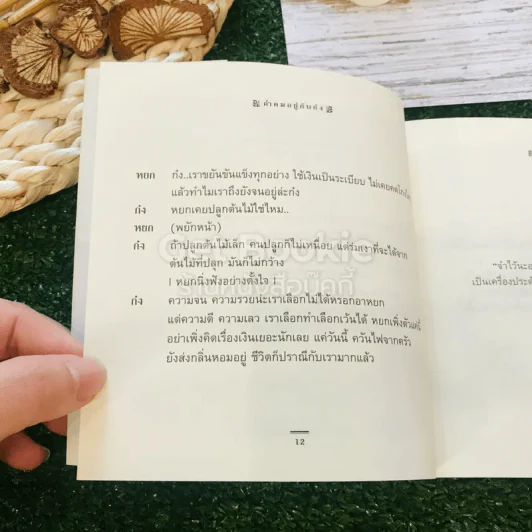 คำคมอยู่กับก๋ง
หยก ก๋ง..เราขยันขันแข็งทุกอย่าง ใช้เงินเป็นระเบียบ ไม่เคยคดโกงใคร
แล้วทำไมเราถึงยังจนอยู่ล่ะก๋ง
ก๋ง หยกเคยปลูกต้นไม้ใช่ไหม..
หยก (พยักหน้า)
ก๋ง ถ้าปลูกต้นไม้เล็ก คนปลูกก็ไม่เหนื่อย แต่ร่มเงาที่จะได้จาก
ต้นไม้ที่ปลูก มันก็ไม่กว้าง
! หยกนิ่งฟังอย่างตั้งใจ !
ก๋ง ความจน ความรวยน่ะเราเลือกไม่ได้หรอกอาหยก
แต่ความดี ความเลว เราเลือกทำเลือกเว้นได้ หยกเพิ่งตัวแค่นี้
อย่าเพิ่งคิดเรื่องเงินเยอะนักเลย แค่วันนี้ ควันไฟจากครัว
ยังส่งกลิ่นหอมอยู่ ชีวิตก็ปราณีกับเรามากแล้ว
12
"จำไว้นะอ
เป็นเครื่องประดั
Bookie
ร้านหนังสือบุ๊คกี้